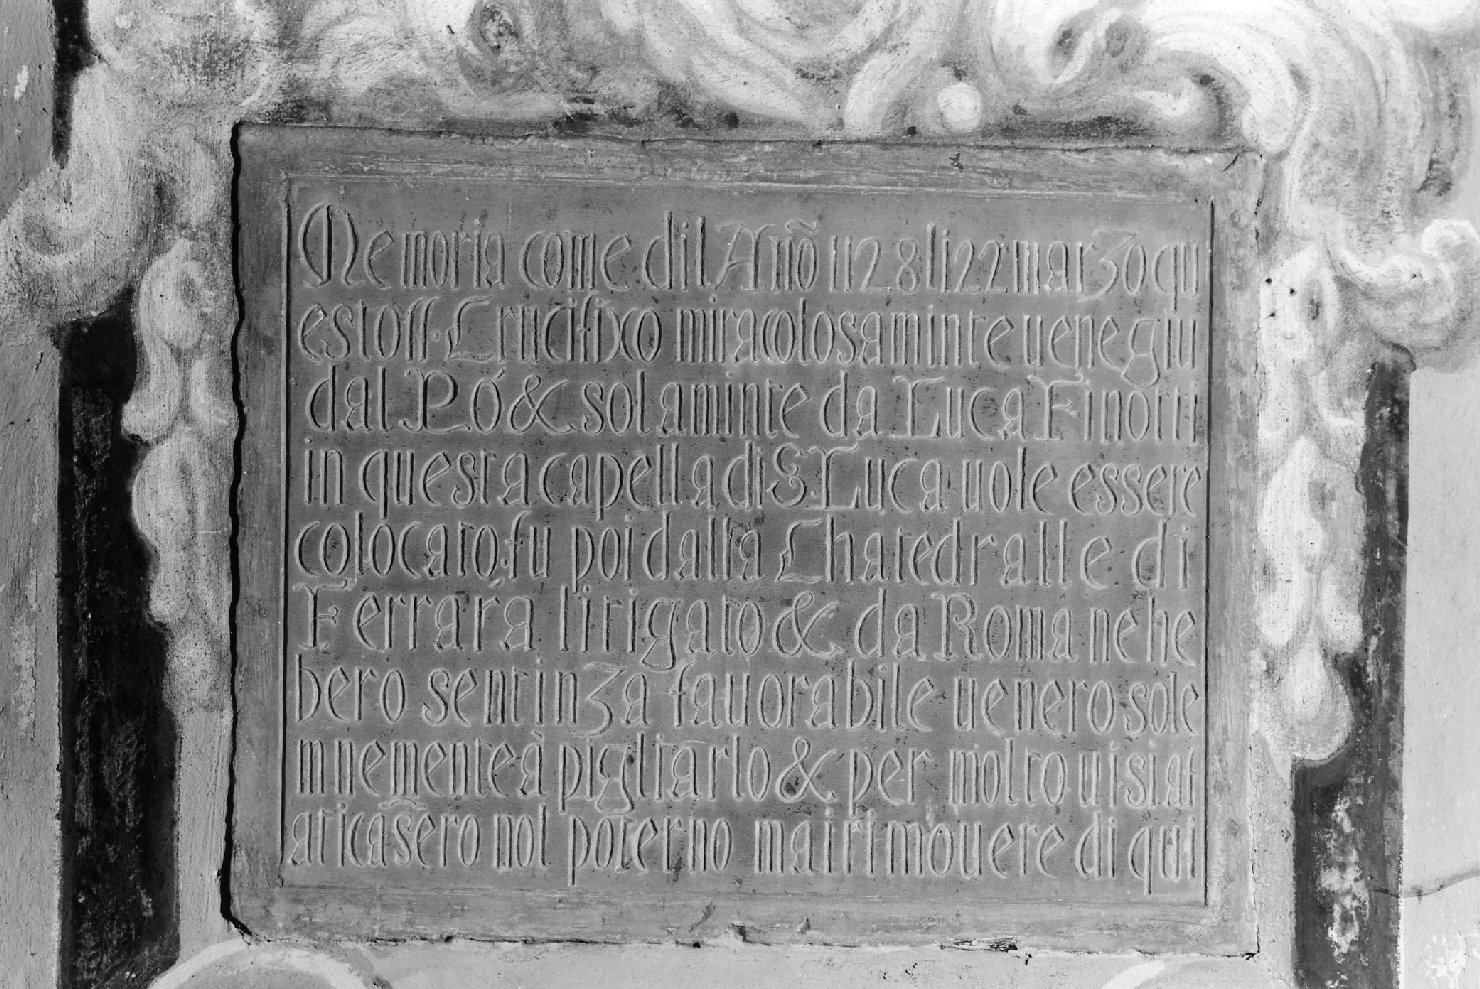 Memoria come del Año 1128 li 22 marzo qu
esto SS. Crucifixo miracolosamente uenegiu
dal Pò & solamente da Luca Finotti
in questa capella di S. Luca uole essere
colocato. fu poi dalla Chatedrale di
Ferara litigato & da Roma ne he
bero sentinza fauorabile uenero sol
nnemente a pigliarlo & per molto uisi af
aticasero nol poterno mai rimouere di qui